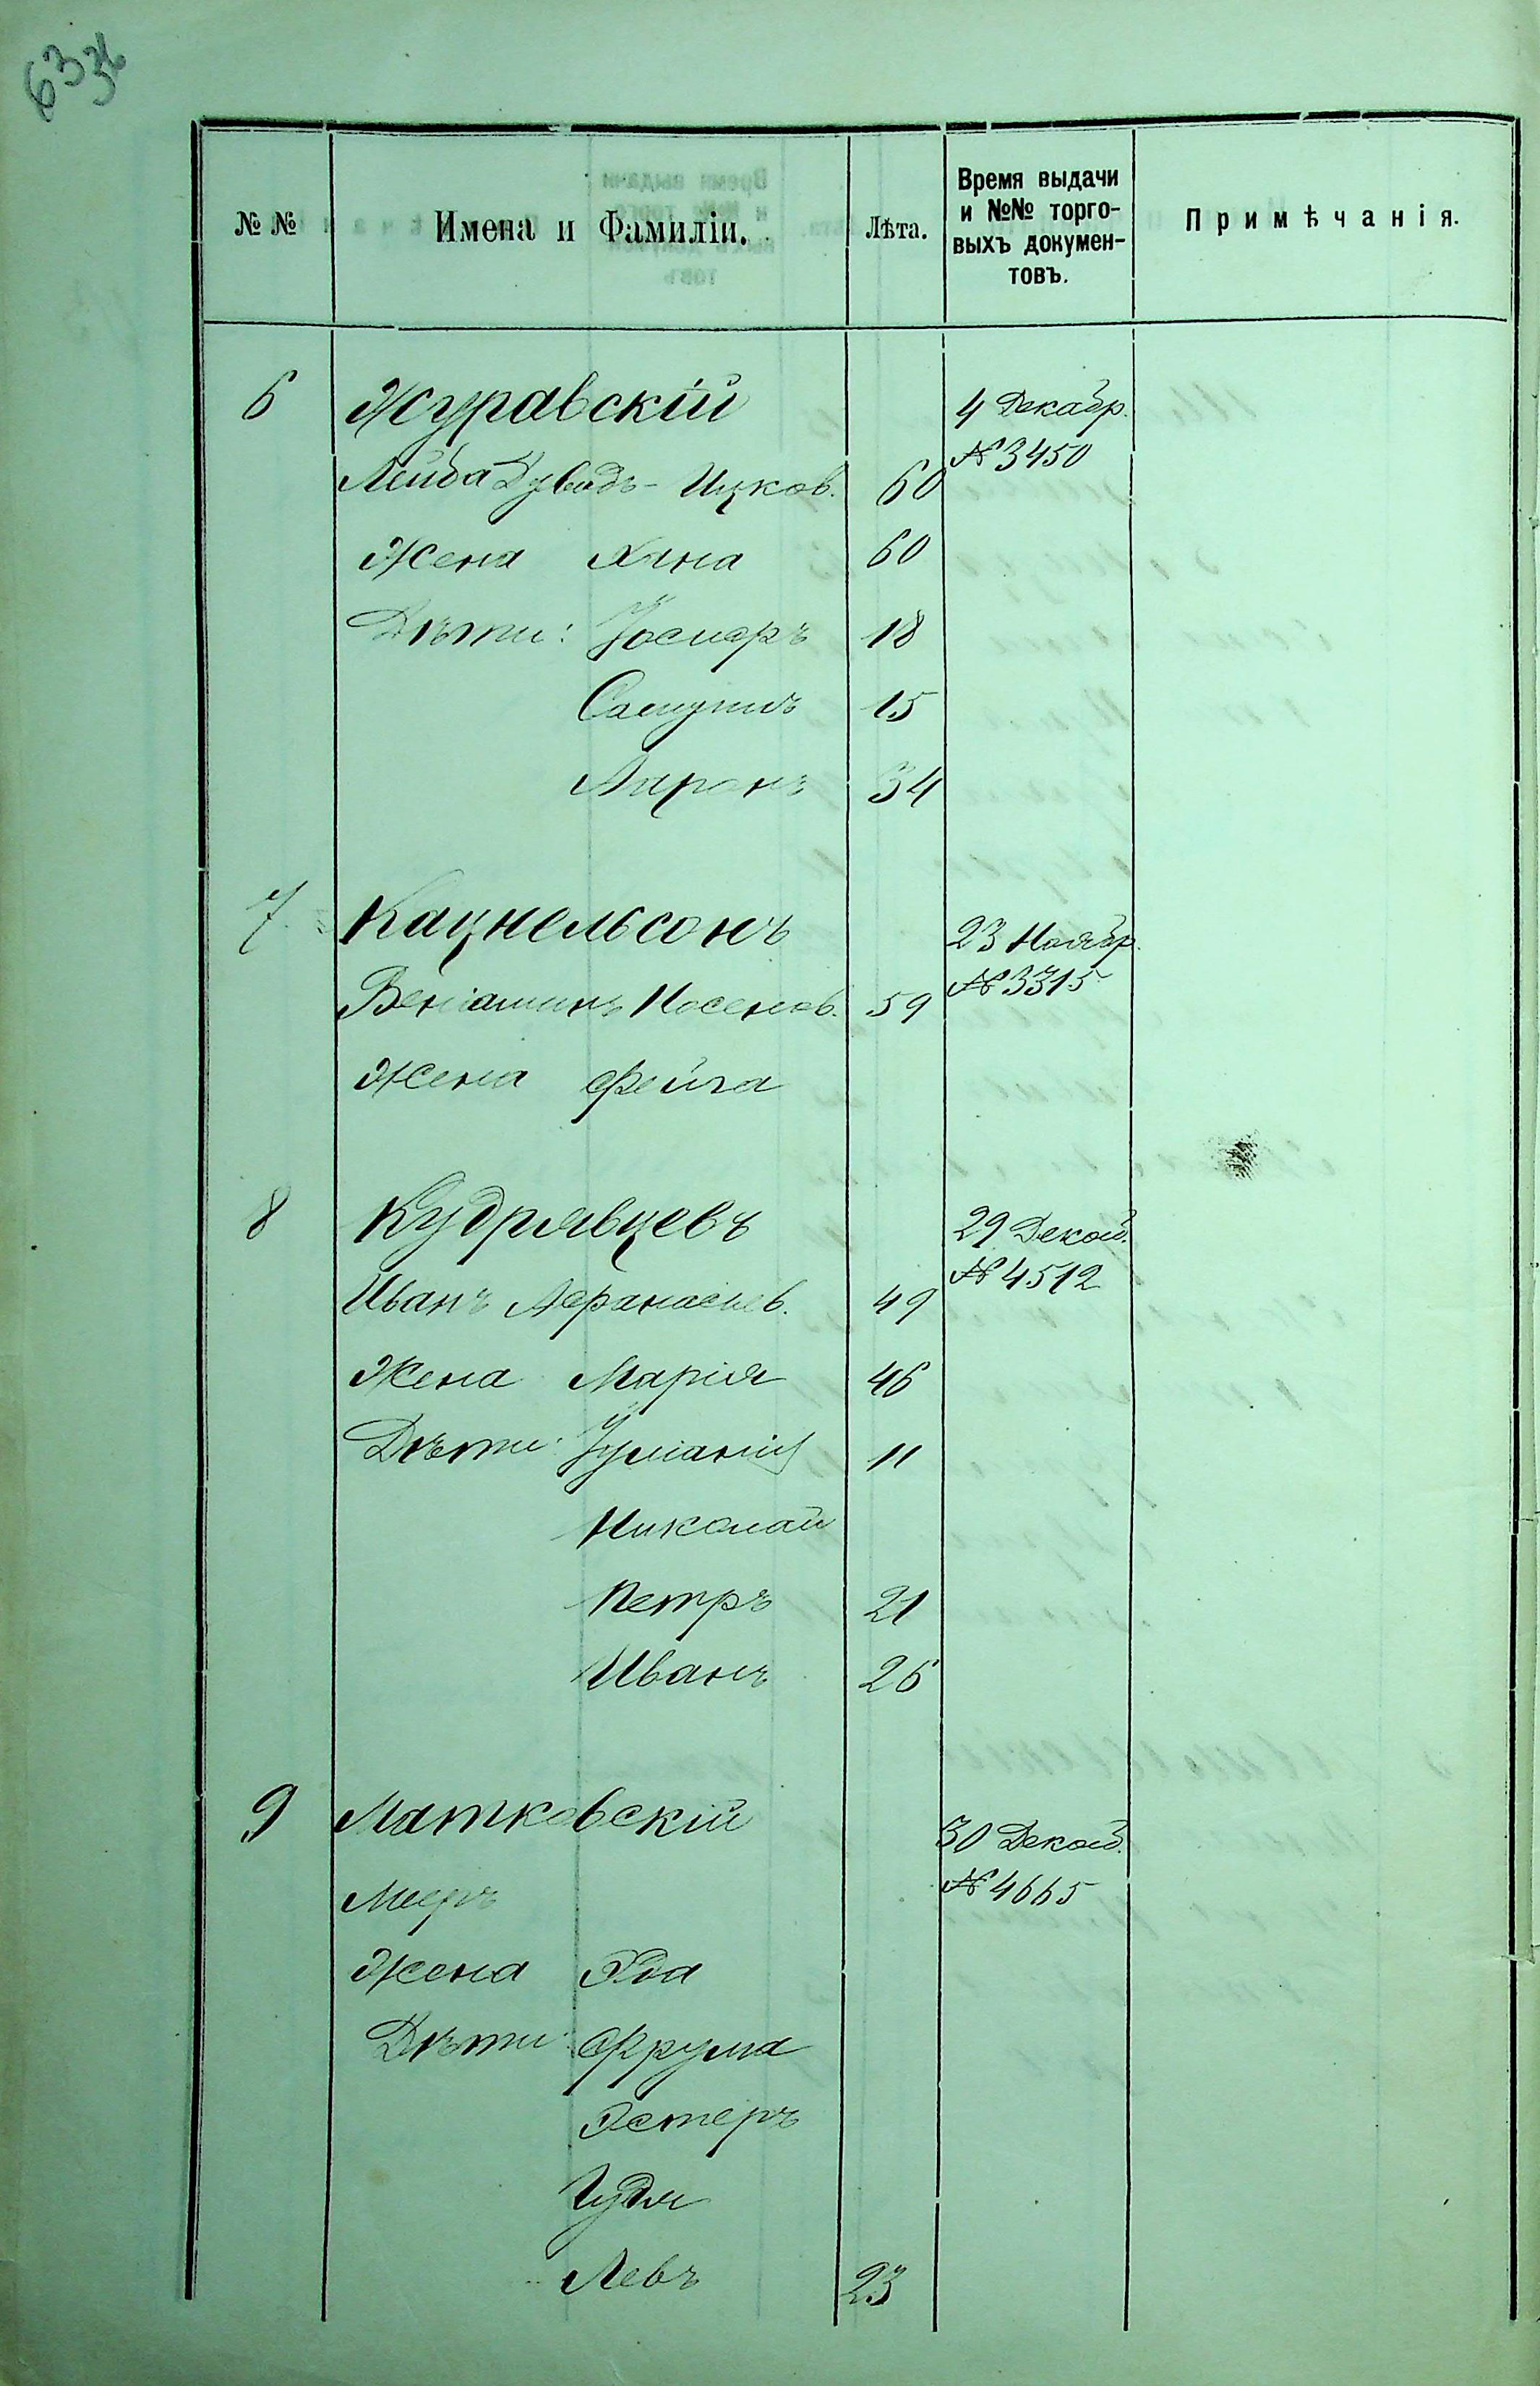 63 36
№ №
Имена и Фамиліи.
Лѣта.
Время выдачи
и №№ торго-
выхъ докумен-
товъ.
Примѣчанія.
6 Журавскій 4 Декабр.
№ 3450
Лейба Дувидъ-Ицков. 60
Жена Хана 60
Дѣти: Іосиеръ 18
Самуилъ 15
Ааронъ 34
7 Кацнельсонъ 23 Ноябр.
№ 3315
Веніаминъ Носелев. 59
Жена Фейга
8 Кудрявцевъ 29 Декаб.
№ 4512
Иванъ Афанасьев. 49
Жена Марія 46
Дѣти: Іуліанія 11
Николай
Петръ 21
Иванъ 26
9 Матковскій 30 Декаб.
№ 4665
Мееръ
Жена Эда
Дѣти: Фрума
Эстеръ
Гудя
Левъ 23